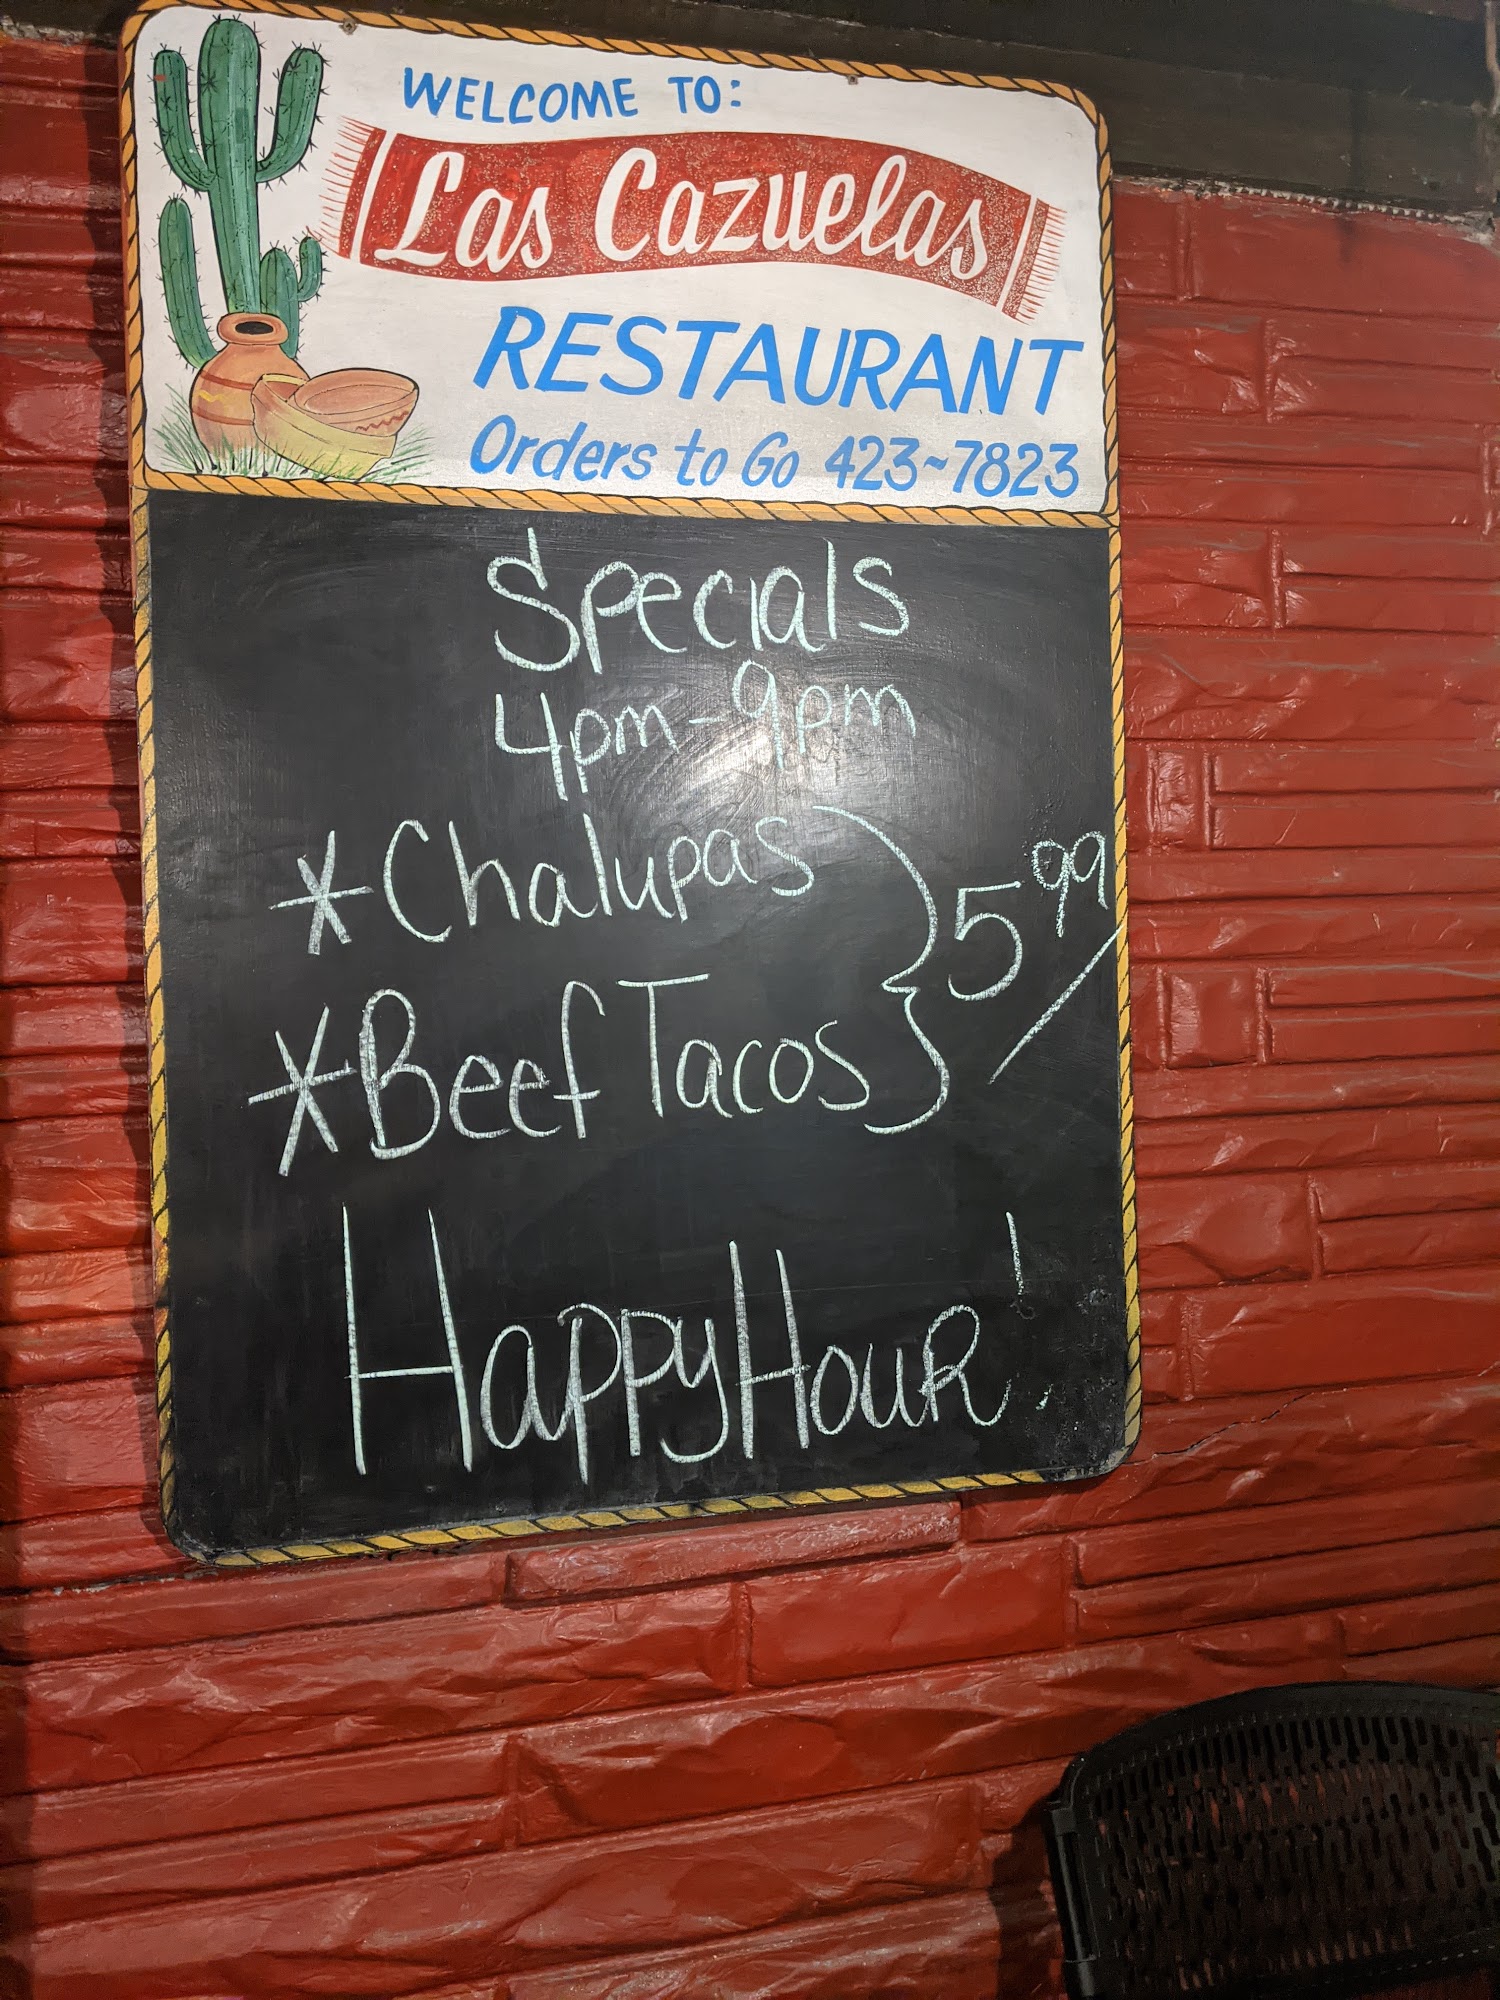 WELCOME TO:
Las Cazuelas
RESTAURANT
Orders to Go 423~7823
Specials
4pm-9pm
*Chalupas
5.99
*Beef Tacos
Happy Hour!